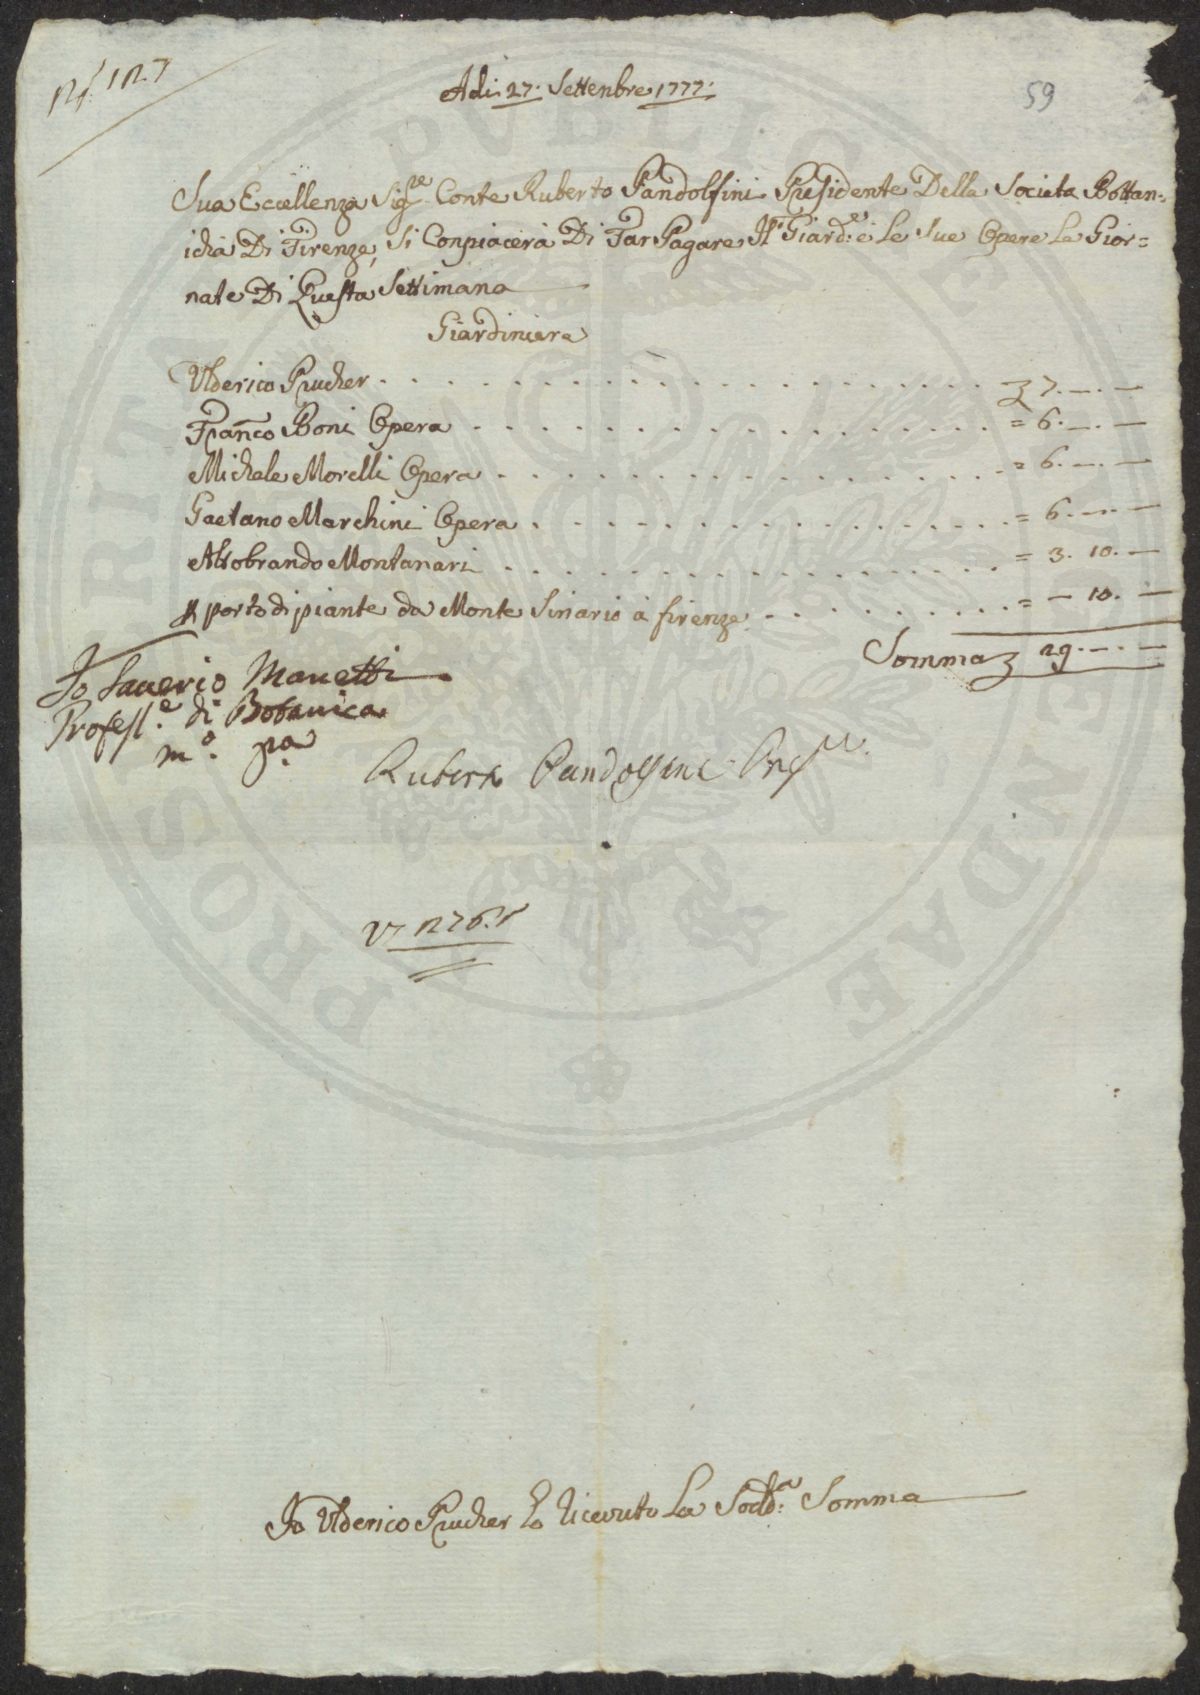 N.° 127
59
Adi: 27. Settenbre 1777.
Sua Eccellenza Sig.re Conte Ruberto Pandolfini Presidente Della Societa Bottan=
icha Di Firenze, Si Conpiacerà Di Far Pagare Il Giard.re e Le Sue Opere La Gior=
nate Di Questa Settimana
Giardiniere
Ulderico Prucher . . . . . . . . . . . . . . . . . . . . . . 7.—.—
Franco Boni Opera . . . . . . . . . . . . . . . . . . = 6.—.—
Michele Morelli Opera . . . . . . . . . . . . . . . . . = 6.—.—
Gaetano Marchini Opera . . . . . . . . . . . . . . . = 6.—.—
Aldobrando Montanari . . . . . . . . . . . . . . . . . = 3. 10.—
porto di piante da Monte Sinario à firenze . . . . . . . . . = — 10.—
Somma 29.—.—
Io Saverio Manetti
Profess.e di Botanica
m.o p.a
Ruberto Pandolfini Pres.te
Io Ulderico Prucher ho ricevuto La Sodd.a Somma
PROSPERITATI PVBLICAE AVGENDAE